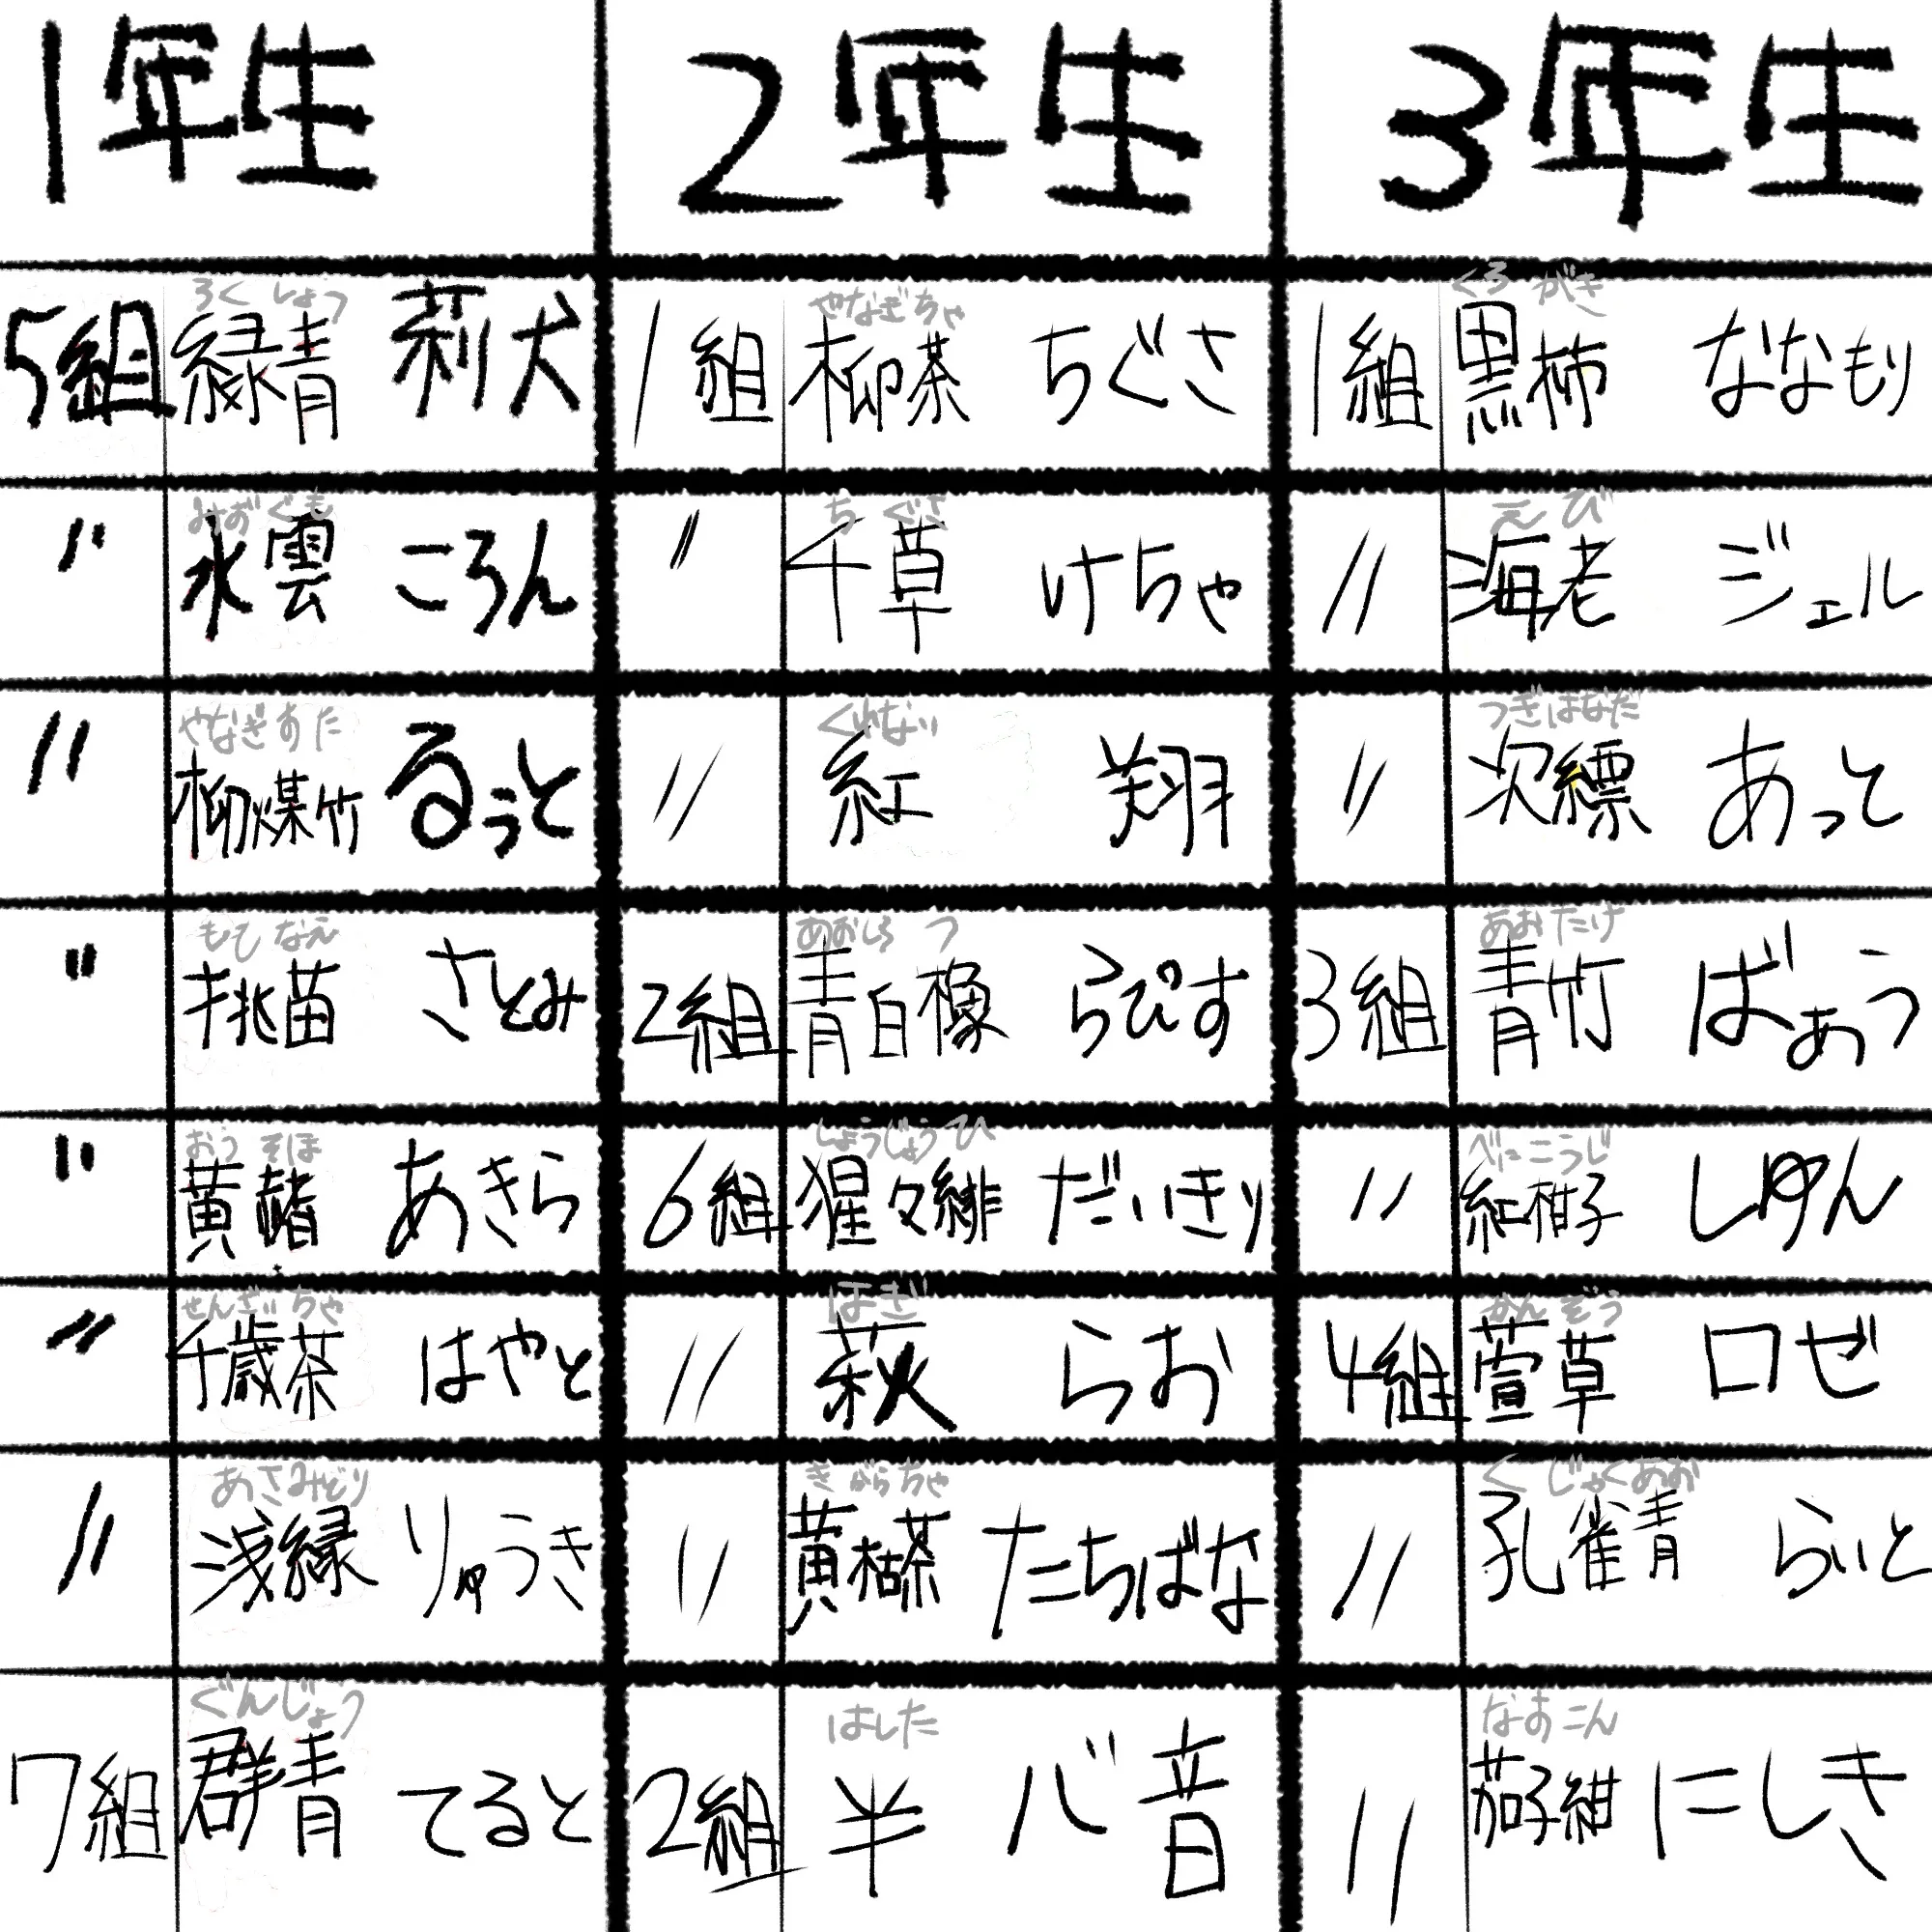 1年生 2年生 3年生
ろくしょう やなぎちゃ くろがき
5組 緑青 莉犬 1組 柳茶 ちぐさ 1組 黒柿 ななもり
みずぐも ちぐさ えび
〃 水雲 ころん 〃 千草 けちゃ 〃 海老 ジェル
やなぎすすた くれない つぎはなだ
〃 柳煤竹 るぅと 〃 紅 翔 〃 次縹 あっと
ももなえ あおしろつ あおたけ
〃 桃苗 さとみ 2組 青白橡 らぴす 3組 青竹 ばぁう
おうそほ しょうじょうひ べにこうじ
〃 黄赭 あきら 6組 猩々緋 だいきり 〃 紅柑子 しゆん
せんざいちゃ はぎ かんぞう
〃 千歳茶 はやと 〃 萩 らお 4組 萱草 ロゼ
あさみどり きがらちゃ くじゃくあお
〃 浅緑 りゅうき 〃 黄枯茶 たちばな 〃 孔雀青 らいと
ぐんじょう はした なすこん
7組 群青 てると 2組 半 心音 〃 茄子紺 にしき